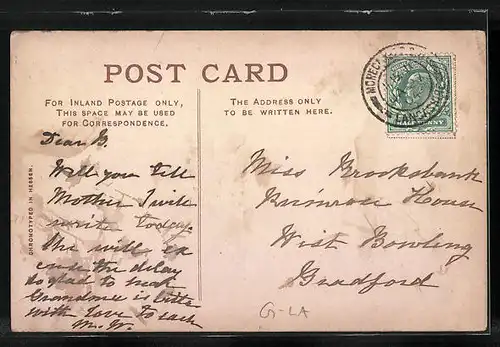 POST CARD
FOR INLAND POSTAGE ONLY,
THIS SPACE MAY BE USED
FOR CORRESPONDENCE.
THE ADDRESS ONLY
TO BE WRITTEN HERE.
Dear B.
Will you tell
Mother I will
write today.
She will ex
cuse the delay
So glad to hear
Grandma is better
with love to each
M. W.
Miss Brooksbank
Primrose House
West Bowling
Bradford
G-LA
CHRONOTYPED IN HESSEN.
LANCASHIRE
PENNY